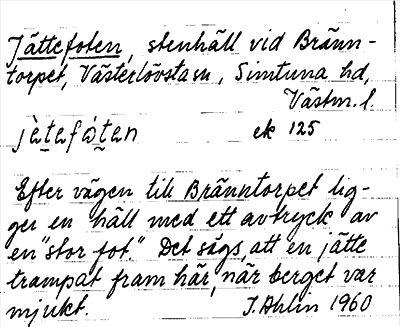 Jättefoten, stenhäll vid Bränn-
torpet, Västerlövsta sn, Simtuna hd,
Västm. l.
jètefót̰en ek 125
Efter vägen till Bränntorpet lig-
ger en häll med ett avtryck av
en "stor fot." Det sägs, att en jätte
trampat fram här, när berget var
mjukt. J. Ahlin 1960